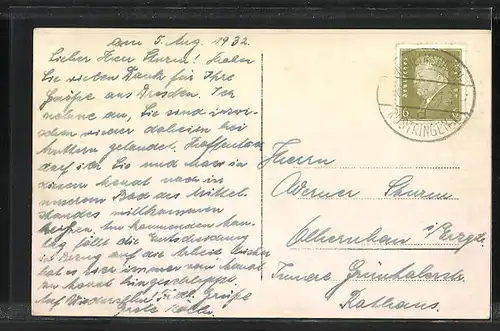 am 5. Aug. 1932.
Lieber Herr Sturm! Haben
Sie vielen Dank für Ihre
Grüße aus Dresden. Ich
nehme an, Sie sind inzwi-
schen wieder daheim bei
Muttern gelandet. Hoffentlich
darf ich Sie und in
diesem Monat noch in
unserem Bad des Mittel-
standes willkommen
heißen. Am kommenden Mon-
tag fällt die Entscheidung
in Bezug auf die Arbeit.
hat es hier immer von Monat
zu Monat hingeschleppt.
Auf Wiedersehn! Frdl. Grüße
Grete
Herrn
Werner Sturm
Olbernhau i/Erzgb.
Innere Grünthalerstr.
Rathaus.
RÜSTRINGEN
6